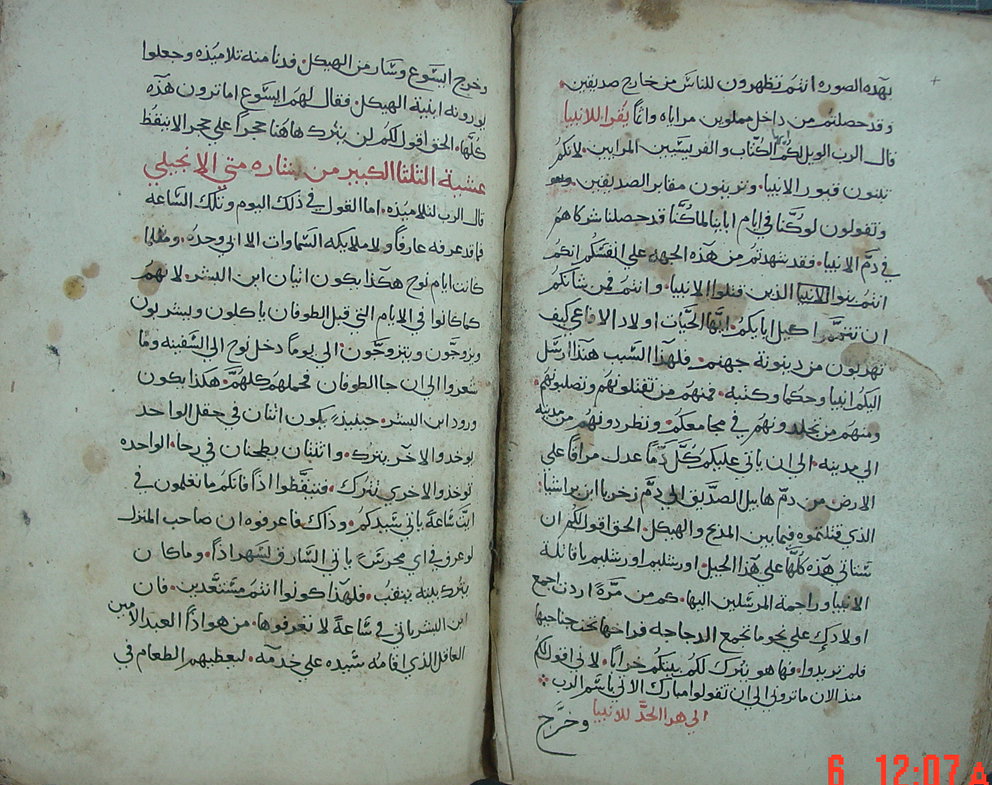 بهذه الصوره انتم تظهرون للناس من خارج صديقين.
وقد حصلتم من داخل مملوين مراياه واثما يقرا للانبيا
قال الرب الويل لكم ايها الكتاب والفريسيين المرايين. لانكم
تبنون قبور الانبيا. وتزينون مقابر الصديقين.
وتقولون لو كنا في ايام ابائنا لما كنا قد حصلنا شركاهم
في دم الانبيا. فقد شهدتم من هذه الجهه علي انفسكم انكم
انتم بنوا الانبيا الذين قتلوا الانبيا. وانتم فمن شانكم
ان تتمموا كيل ابايكم. ايها الحيات اولاد الافاعي كيف
تهربون من دينونة جهنم. فلهذا السبب هنذا ارسل
اليكم انبيا وحكما وكتبه. فمنهم من تقتلونهم وتصلبونهم
ومنهم من تجلدونهم في مجامعكم. وتطردونهم من مدينه
الي مدينه. الي ان ياتي عليكم كل دما عدل مراقا علي
الارض. من دم هابيل الصديق الي دم زخريا ابن براشيا
الذي قتلتموه فيما بين المذبح والهيكل. الحق اقول لكم ان
ستاتي هذه كلها علي هذا الجيل. اورشليم اورشليم يا قاتلة
الانبيا وراجمة المرسلين اليها. كم من مرة اردت اجمع
اولادك علي نحو ما تجمع الدجاجه فراخها تحت جناحيها
فلم تريدوا. فها هو نترك لكم بيتكم خرابا. لاني اقول لكم
منذ الان ما تروني الي ان تقولوا مبارك الاتي باسم الرب
الي هدا الحد للانبيا وخرج
وخرج ايسوع وسار من الهيكل. فدنا منه تلاميذه وجعلوا
يورونه ابنية الهيكل. فقال لهم ايسوع اما ترون هذه
كلها. الحق اقول لكم لن يترك هاهنا حجرا علي حجر الا ينقظ
عشية الثلثا الكبير من بشاره متي الانجيلي
قال الرب لتلاميذه. اما القول في ذلك اليوم وتلك الساعة
فما قد عرفه عارفا ولا ملايكه السماوات الا ابي وحده. ومثلما
كانت ايام نوح هكذا يكون اتيان ابن البشر. لانهم
كما كانوا في الايام التي قبل الطوفان ياكلون ويشربون
ويزوجون ويتزوجون. الي يوما دخل نوح الي السفينه وما
شعروا الي ان جا الطوفان فحملهم كلهم. هكذا يكون
ورود ابن البشر. حينيذ يكون اثنان في حقل الواحد
يوخد والاخر يترك. واثنتان يطحنان في رحا. الواحده
توخذ والاخري تترك. فتيقظوا اذا فانكم ما تعلمون في
ايت ساعة ياتي سيدكم. وذاك فاعرفوه ان صاحب المنزل
لو عرف في اي محرس ياتي السارق لسهر اذا. وما كان
يترك بيته ينقب. فلهذا كونوا انتم مستعدين. فان
ابن البشر ياتي في ساعة لا تعرفوها. من هو اذا العبد الامين
العاقل الذي اقامه سيده علي خدمه. ليعطيهم الطعام في
6 12:07 A